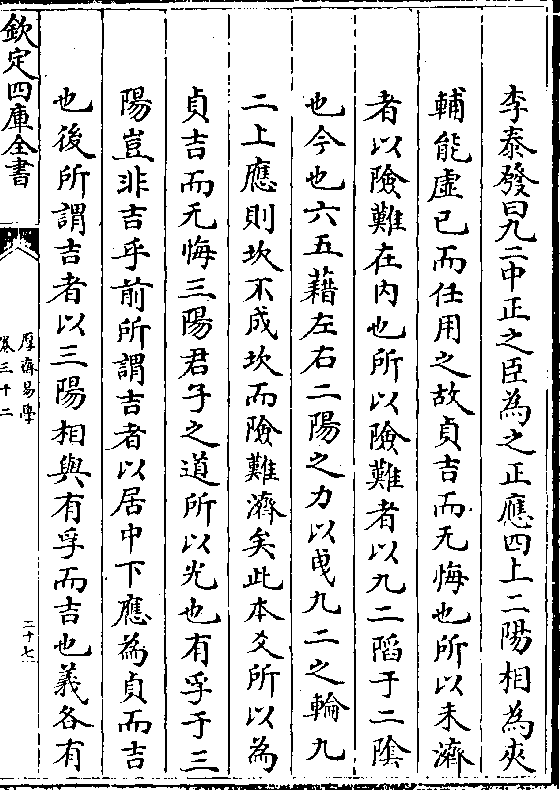 李泰發曰九二中正之臣為之正應四上二陽相為夾
輔能虛已而任用之故貞吉而无悔也所以未濟
者以險難在内也所以險難者以九二䧟于二隂
也今也六五藉左右二陽之力以曵九二之輪九
二上應則坎不成坎而險難濟矣此本爻所以為
貞吉而无悔三陽君子之道所以光也有孚于三
陽豈非吉乎前所謂吉者以居中下應為貞而吉
也後所謂吉者以三陽相與有孚而吉也義各有
欽定四庫全書
厚齋易學
卷三十二
二十七